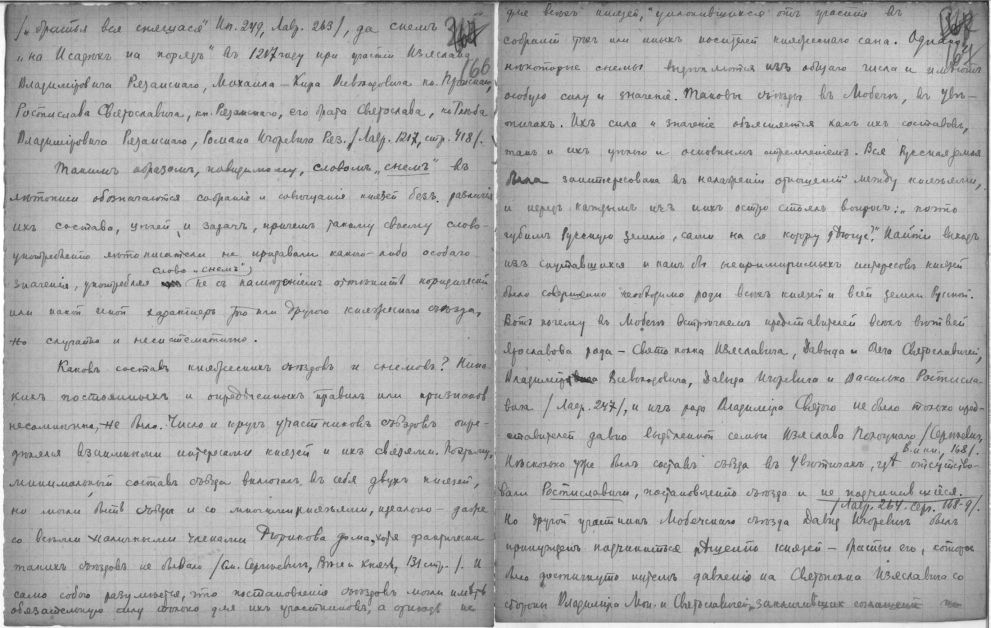 /„братья вся снемшася" Ип. 249, Лавр. 263/, да снем
166
„на Исадѣхъ на порядъ" въ 1217 году при участіи Изяслава
Владиміровича Рязанскаго, Михаила - Кира Всеволодовича кн. Пронскаго,
Ростислава Святославича, кн. Рязанскаго, его брата Святослава, кн. Глѣба
Владиміровича Рязанскаго, Романа Игоревича Ряз. /Лавр. 1217, стр. 418/.
Такимъ образомъ, повидимому, словомъ „снемъ" въ
лѣтописи обозначаются собранія и совѣщанія князей безъ различія
ихъ состава, цѣлей и задачъ, причемъ такому своему слово-
употребленію лѣтописатели не придавали какого-либо особаго
слово „снемъ"
значенія, употребляя не съ намѣреніемъ оттѣнить юридическій
или какой иной характеръ того или другого княжескаго съѣзда,
но случайно и несистематично.
Каковъ составъ княжескихъ съѣздовъ и снемовъ? Ника-
кихъ постоянныхъ и опредѣленныхъ правилъ или признаковъ
несомнѣнно, не было. Число и кругъ участниковъ съѣздовъ опре-
дѣлялся взаимными интересами князей и ихъ связями. Поэтому,
минимальный составъ съѣзда включалъ въ себя двухъ князей,
но могли быть съѣзды и со многими князьями, идеально - даже
со всѣми наличными членами Рюрикова дома, хотя фактически
такихъ съѣздовъ не бывало /См. Сергѣевичъ, Вѣче и Князь, 131 стр./. И
само собою разумѣется, что постановленія съѣздовъ могли имѣть
обязательную силу только для ихъ участниковъ, а отнюдь не
для всѣхъ князей, уклонившихся отъ участія въ
собраніи тѣхъ или иныхъ носителей княжескаго сана. Однако
нѣкоторые снемы выдѣляются изъ общаго числа и имѣютъ
особую силу и значеніе. Таковы съѣзды въ Любечѣ, въ Увѣ-
тичахъ. Ихъ сила и значеніе объясняется какъ ихъ составомъ,
такъ и ихъ цѣлью и основнымъ стремленіемъ. Вся Русская земля
была заинтересована въ налаженіи отношеній между князьями,
и передъ каждымъ изъ нихъ остро стоялъ вопросъ: „почто
губимъ Русскую землю, сами на ся котору дѣюще?" Найти выходъ
изъ спутавшихся и какъ бы непримиримыхъ интересовъ князей
было совершенно необходимо ради всѣхъ князей и всей земли Русской.
Вотъ почему въ Любечѣ встрѣчаемъ представителей всѣхъ вѣтвей
Ярославова рода - Святополка Изяславича, Давыда и Олега Святославичей,
Владиміра Всеволодовича, Давыда Игоревича и Василько Ростисла-
вича /Лавр. 247/, и изъ рода Владиміра Святого не было только пред-
ставителей давно выдѣленной семьи Изяслава Полоцкаго /Сергѣевич,
В. и кн., 168/.
Нѣсколько уже былъ составъ съѣзда въ Увѣтичахъ, гдѣ отсутство-
вали Ростиславичи, постановленію съѣзда и не подчинившіеся.
/Лавр. 264. Сер. 168-9/.
Но другой участникъ Любечскаго съѣзда Давидъ Игоревичъ былъ
принужденъ подчиниться рѣшенію князей - братьи его, которое
было достигнуто путемъ давленія на Святополка Изяславича со
стороны Владиміра Мон. и Святославичей, заключившихъ соглашеніе